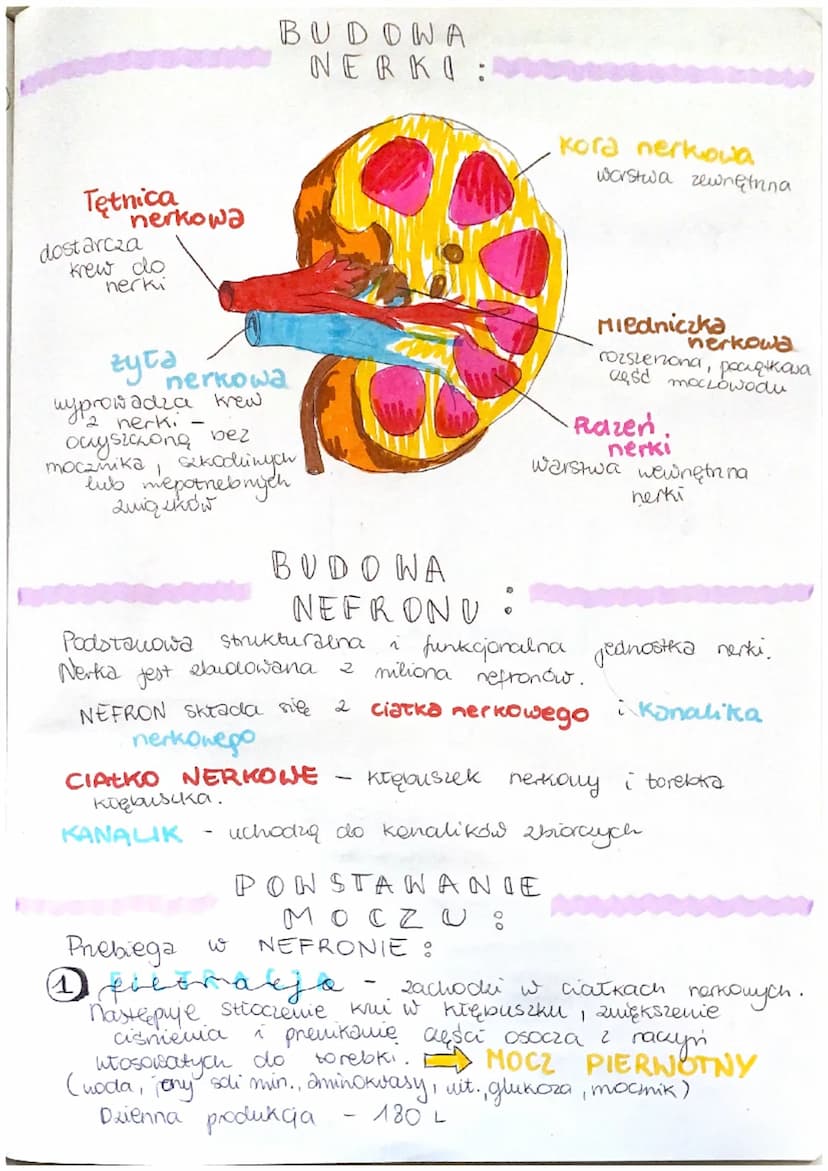 BUDOWA
NERKI:
Kora nerkowa
warstwa zewnętrzna
Tętnica
nerkowa
dostarcza
krew do
nerki
Miedniczka
nerkowa
rozszerzona, początkowa
część moczowodu
żyła
nerkowa
wyprowadza krew
z nerki –
oczyszczoną bez
mocznika, szkodliwych
lub niepotrzebnych
związków
Rdzeń
nerki
warstwa wewnętrzna
nerki
BUDOWA
NEFRONU:
Podstawowa strukturalna i funkcjonalna jednostka nerki.
Nerka jest zbudowana z miliona nefronów.
NEFRON składa się z ciałka nerkowego i kanalika
nerkowego
CIAŁKO NERKOWE – kłębuszek nerkowy i torebka
kłębuszka.
KANALIK - uchodzą do kanalików zbiorczych
POWSTAWANIE
MOCZU:
Przebiega w NEFRONIE:
1 FILTRACJA filtracja – zachodzi w ciałkach nerkowych.
Następuje stłoczenie krwi w kłębuszku, zwiększenie
ciśnienia i przenikanie części osocza z naczyń
włosowatych do torebki. ➡ MOCZ PIERWOTNY
(woda, jony soli min., aminokwasy, wit., glukoza, mocznik)
Dzienna produkcja – 180 L